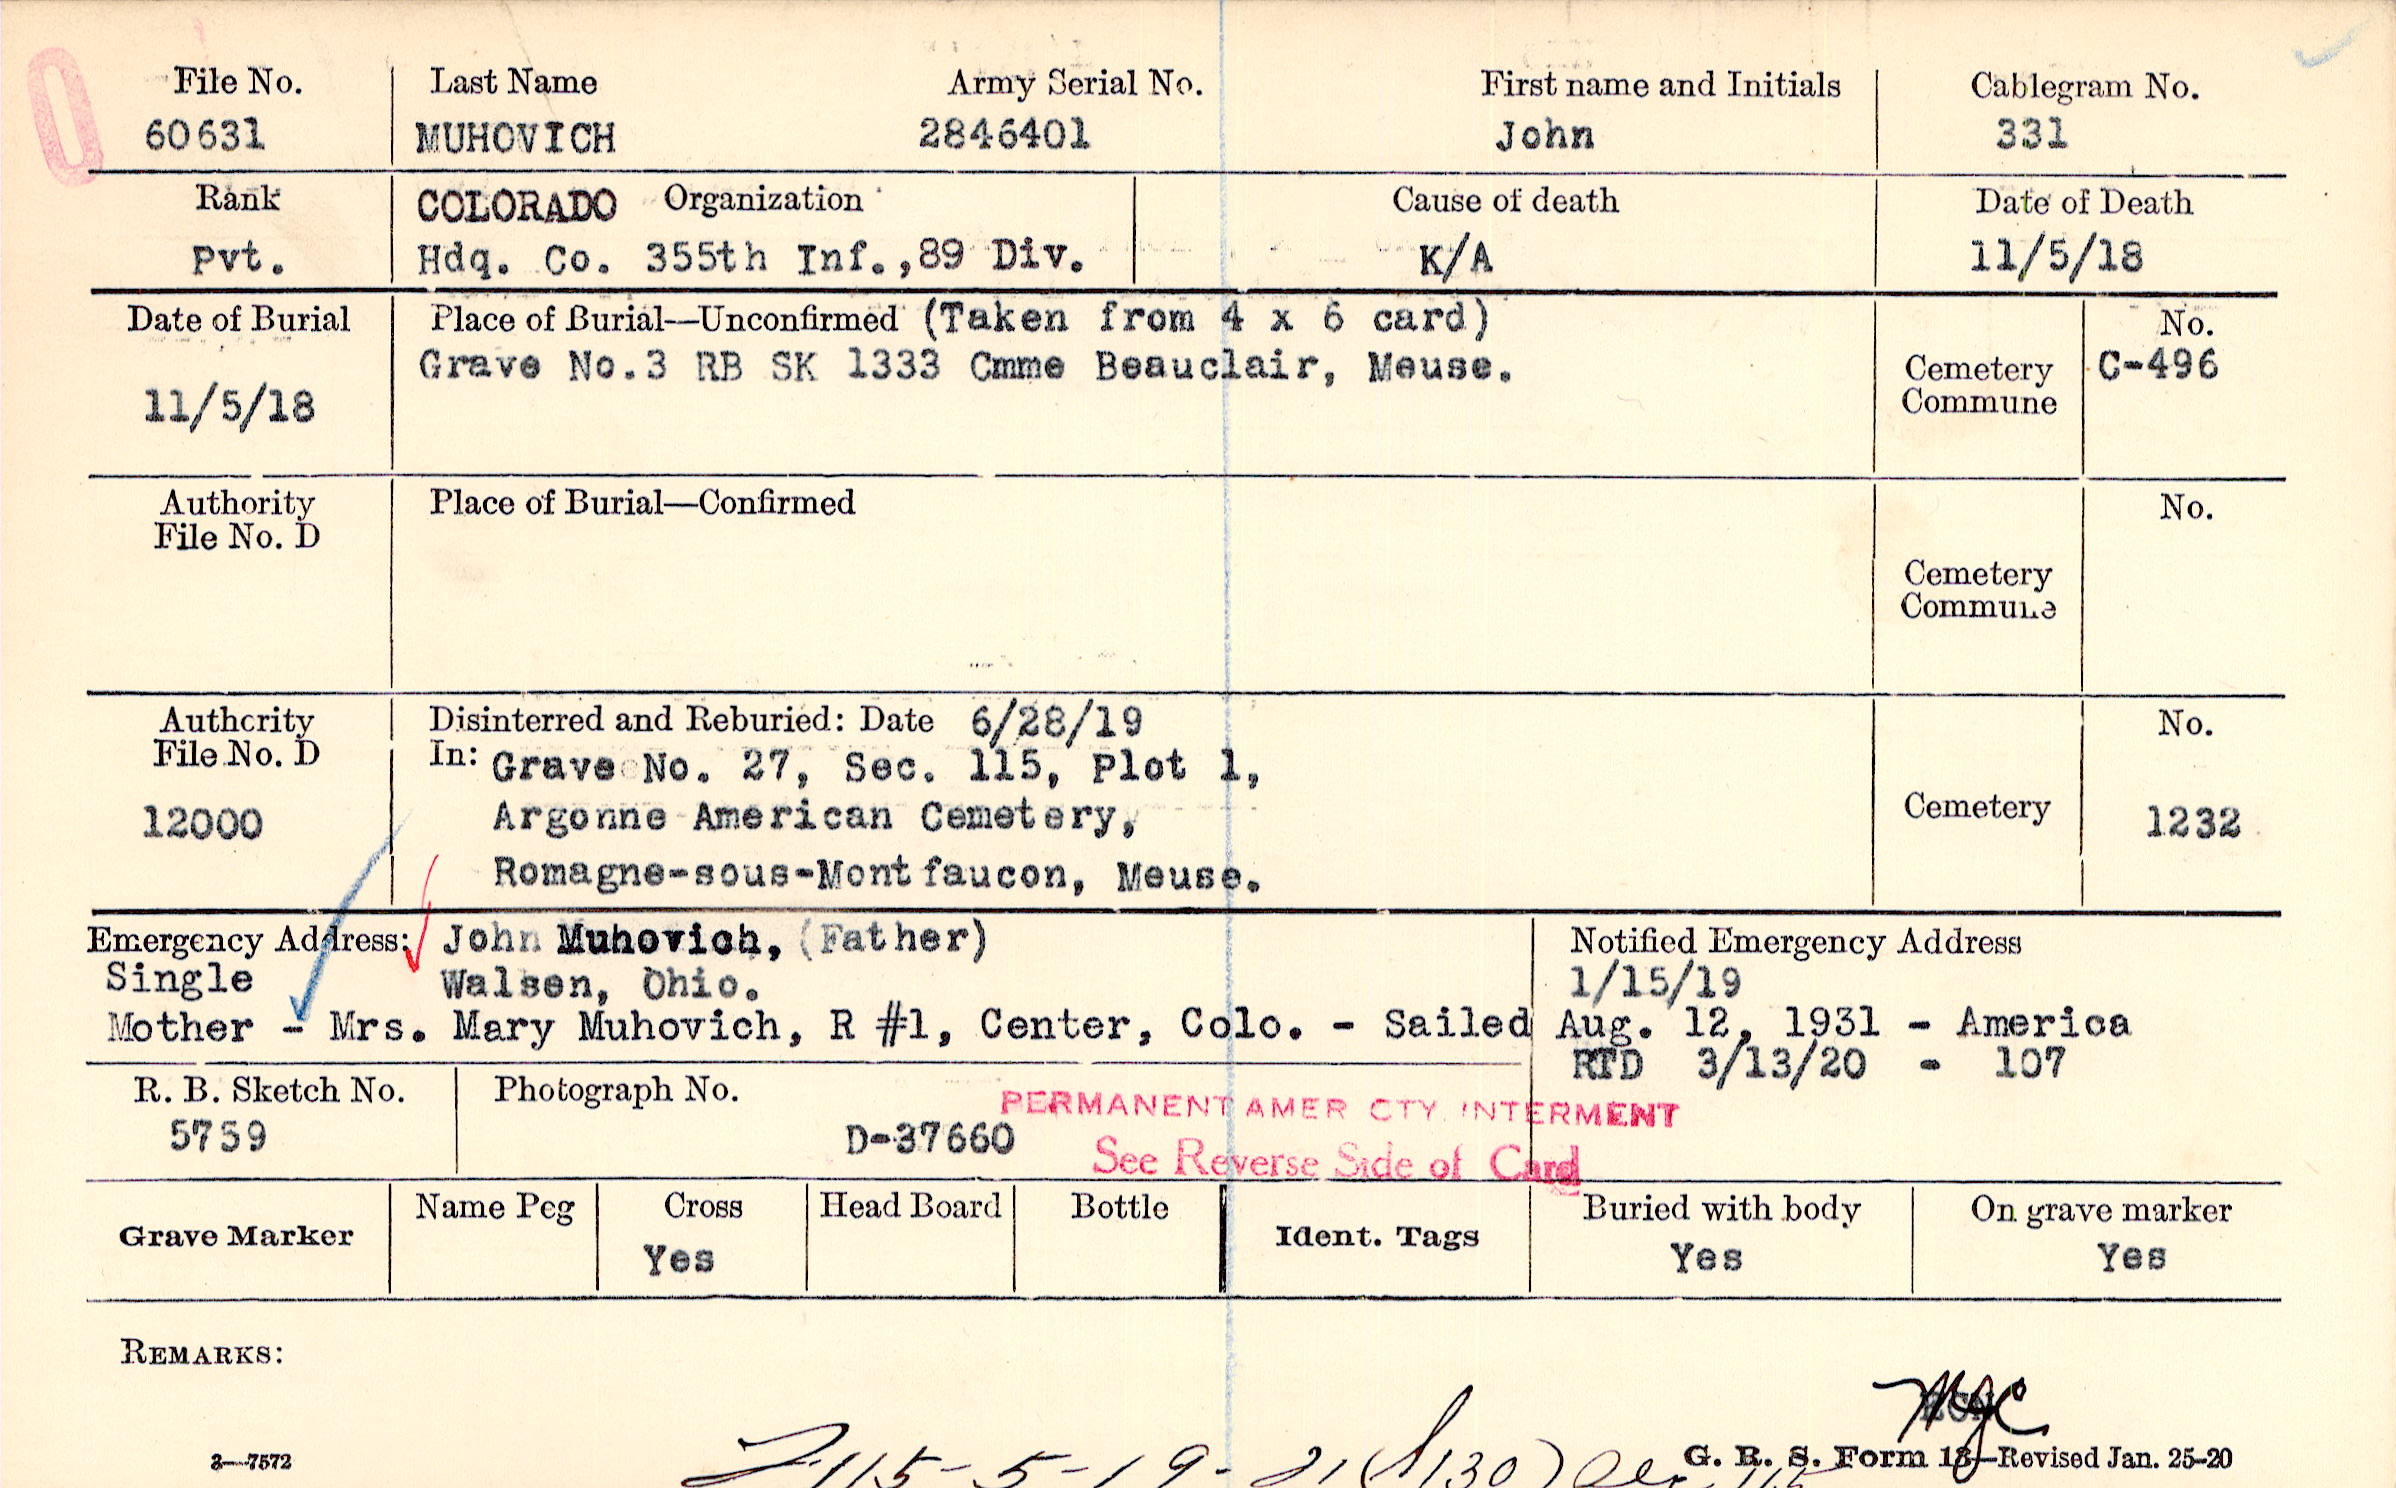 File No. Last Name Army Serial No. First name and Initials Cablegram No.
60631 MUHOVICH 2846401 John 331
Rank COLORADO Organization Cause of death Date of Death
Pvt. Hdq. Co. 355th Inf.,89 Div. K/A 11/5/18
Date of Burial Place of Burial—Unconfirmed (Taken from 4 x 6 card) No.
Grave No.3 RB SK 1333 Cmme Beauclair, Meuse. Cemetery C-496
11/5/18 Commune
Authority Place of Burial—Confirmed No.
File No. D
Cemetery
Commune
Authority Disinterred and Reburied: Date 6/28/19 No.
File No. D In: Grave No. 27, Sec. 115, Plot 1,
12000 Argonne American Cemetery, Cemetery 1232
Romagne-sous-Montfaucon, Meuse.
Emergency Address: John Muhovich, (Father) Notified Emergency Address
Single Walsen, Ohio. 1/15/19
Mother - Mrs. Mary Muhovich, R #1, Center, Colo. - Sailed Aug. 12, 1931 - America
RTD 3/13/20 - 107
R. B. Sketch No. Photograph No. PERMANENT AMER CTY. INTERMENT
5759 D-37660 See Reverse Side of Card
Grave Marker Name Peg Cross Head Board Bottle Ident. Tags Buried with body On grave marker
Yes Yes Yes
REMARKS:
3—7572 G. R. S. Form 13—Revised Jan. 25-20